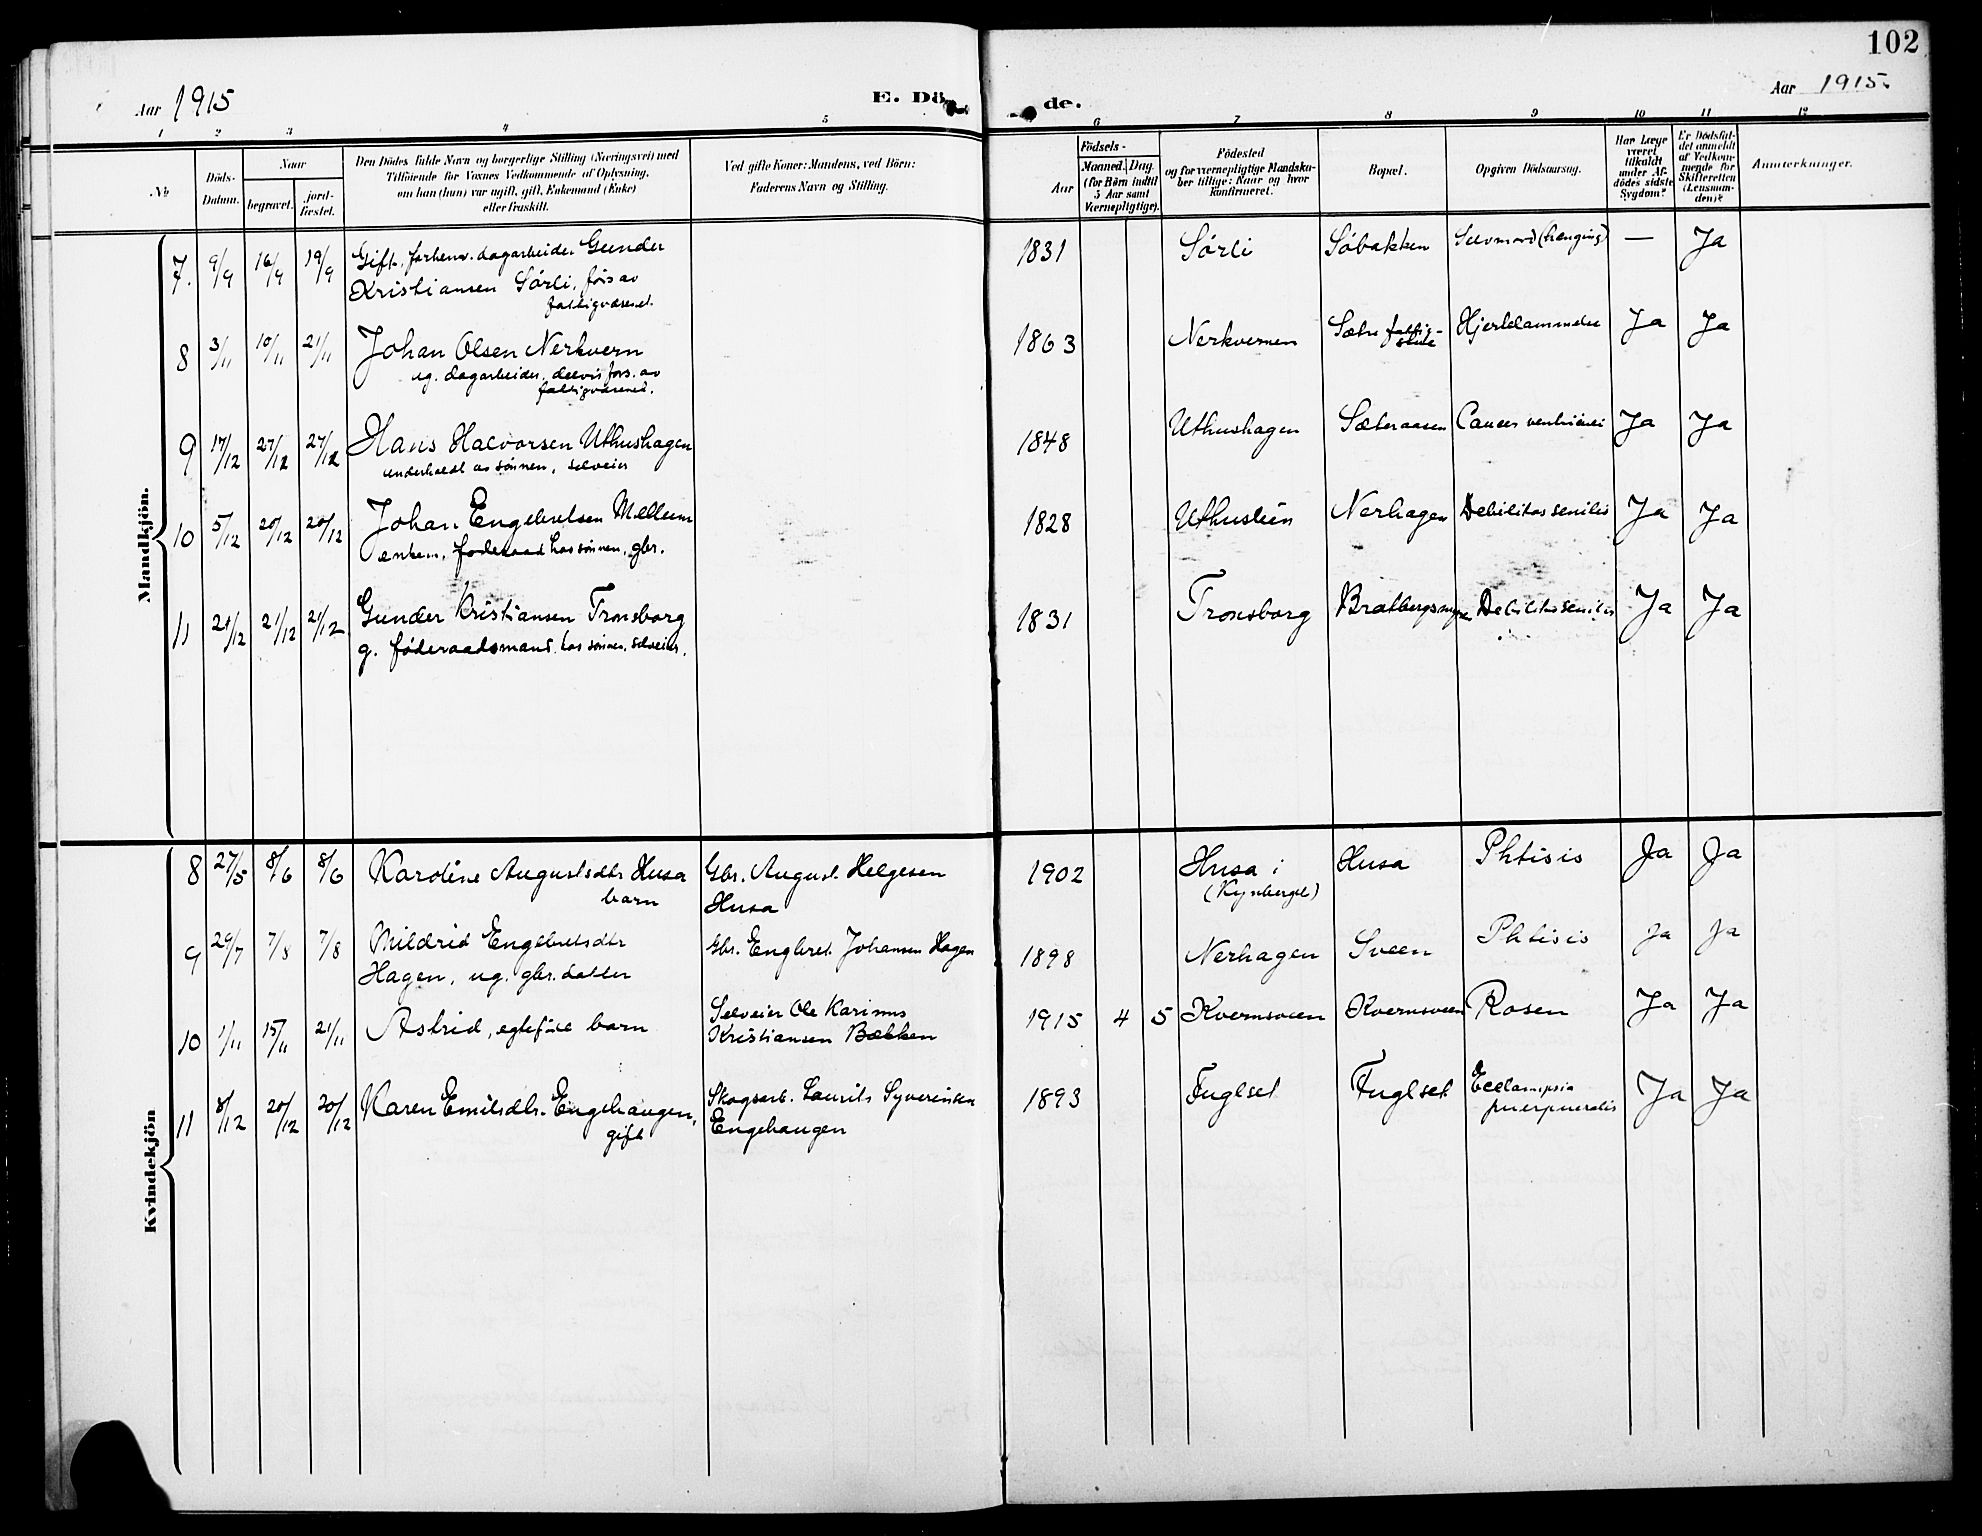 102
Aar 1915
E. Dö
de.
Aar 1915.
1 2 3 4 5 6 7 8 9 10 11 12
No
Döds-
Datum.
Naar
begravet.
jord-
fæstet.
Den Dödes fulde Navn og borgerlige Stilling (Næringsvei) med
Tilföiende for Voxnes Vedkommende af Oplysning,
om han (hun) var ugift, gift, Enkemand (Enke)
eller fraskilt.
Ved gifte Koner: Mandens, ved Börn:
Faderens Navn og Stilling.
Födsels-
Aar
Maaned. Dag.
(for Börn indtil
5 Aar samt
Værnepligtige).
Födested
og for værnepligtige Mandska-
ber tillige: Naar og hvor
konfirmeret.
Bopæl.
Opgiven Dödsaarsag.
Har Læge
været
tilkaldt
under Af-
dödes sidste
Sygdom?
Er Dödsfal-
det anmeldt
af Vedkom-
mende for
Skifteretten
(Lensman-
den)?
Anmerkninger.
Mandkjön.
7. 9/9 16/9 19/9 Gift, forhenv. dagarbeider Gunder 1831 Sørli Søbakken Selvmord (hænging) — Ja
Kristiansen Sørli, fors. av
fattigvæsenet.
8 3/11 10/11 21/11 Johan Olsen Nerkvern 1863 Nerkvernen Sætre fattig- Hjertelammelse Ja Ja
ug. dagarbeider, delvis fors. av
fattigvæsenet.
9 17/12 27/12 27/12 Hans Halvorsen Uthushagen 1848 Uthushagen Sæteraasen Cancer ventriculi Ja Ja
underholdt av sønnen, selveier
10 5/12 20/12 20/12 Johan Engebretsen Mellem 1828 Uthusteen Nerhagen Debilitas senilis Ja Ja
enkem. føderaad hos sønnen, gbr.
11 21/12 21/12 Gunder Kristiansen Tronsborg 1831 Tronsborg Debilitas senilis Ja Ja
g. føderaadsmand hos sønnen, selveier.
Kvindekjön
8 27/5 8/6 8/6 Karoline Augustsdtr Husa Gbr. August Helgesen 1902 Husa i Husa Phtisis Ja Ja
barn Husa (Kynberget)
9 29/7 7/8 7/8 Mildrid Engebretsdtr Gbr. Engbret Johansen Hagen 1898 Nerhagen Sveen Phtisis Ja Ja
Hagen, ug. gbr. datter
10 1/11 15/11 21/11 Astrid, egtefødt barn Selveier Ole Karinus 1915 4 5 Kvernsveen Kvernsveen Rosen Ja Ja
Kristiansen Bækken
11 8/12 20/12 20/12 Karen Emilsdtr. Engehaugen, Skogsarb. Laurits Syverinsen 1893 Fuglset Fuglset Eclampsia Ja Ja
gift Engehaugen puerpueralis